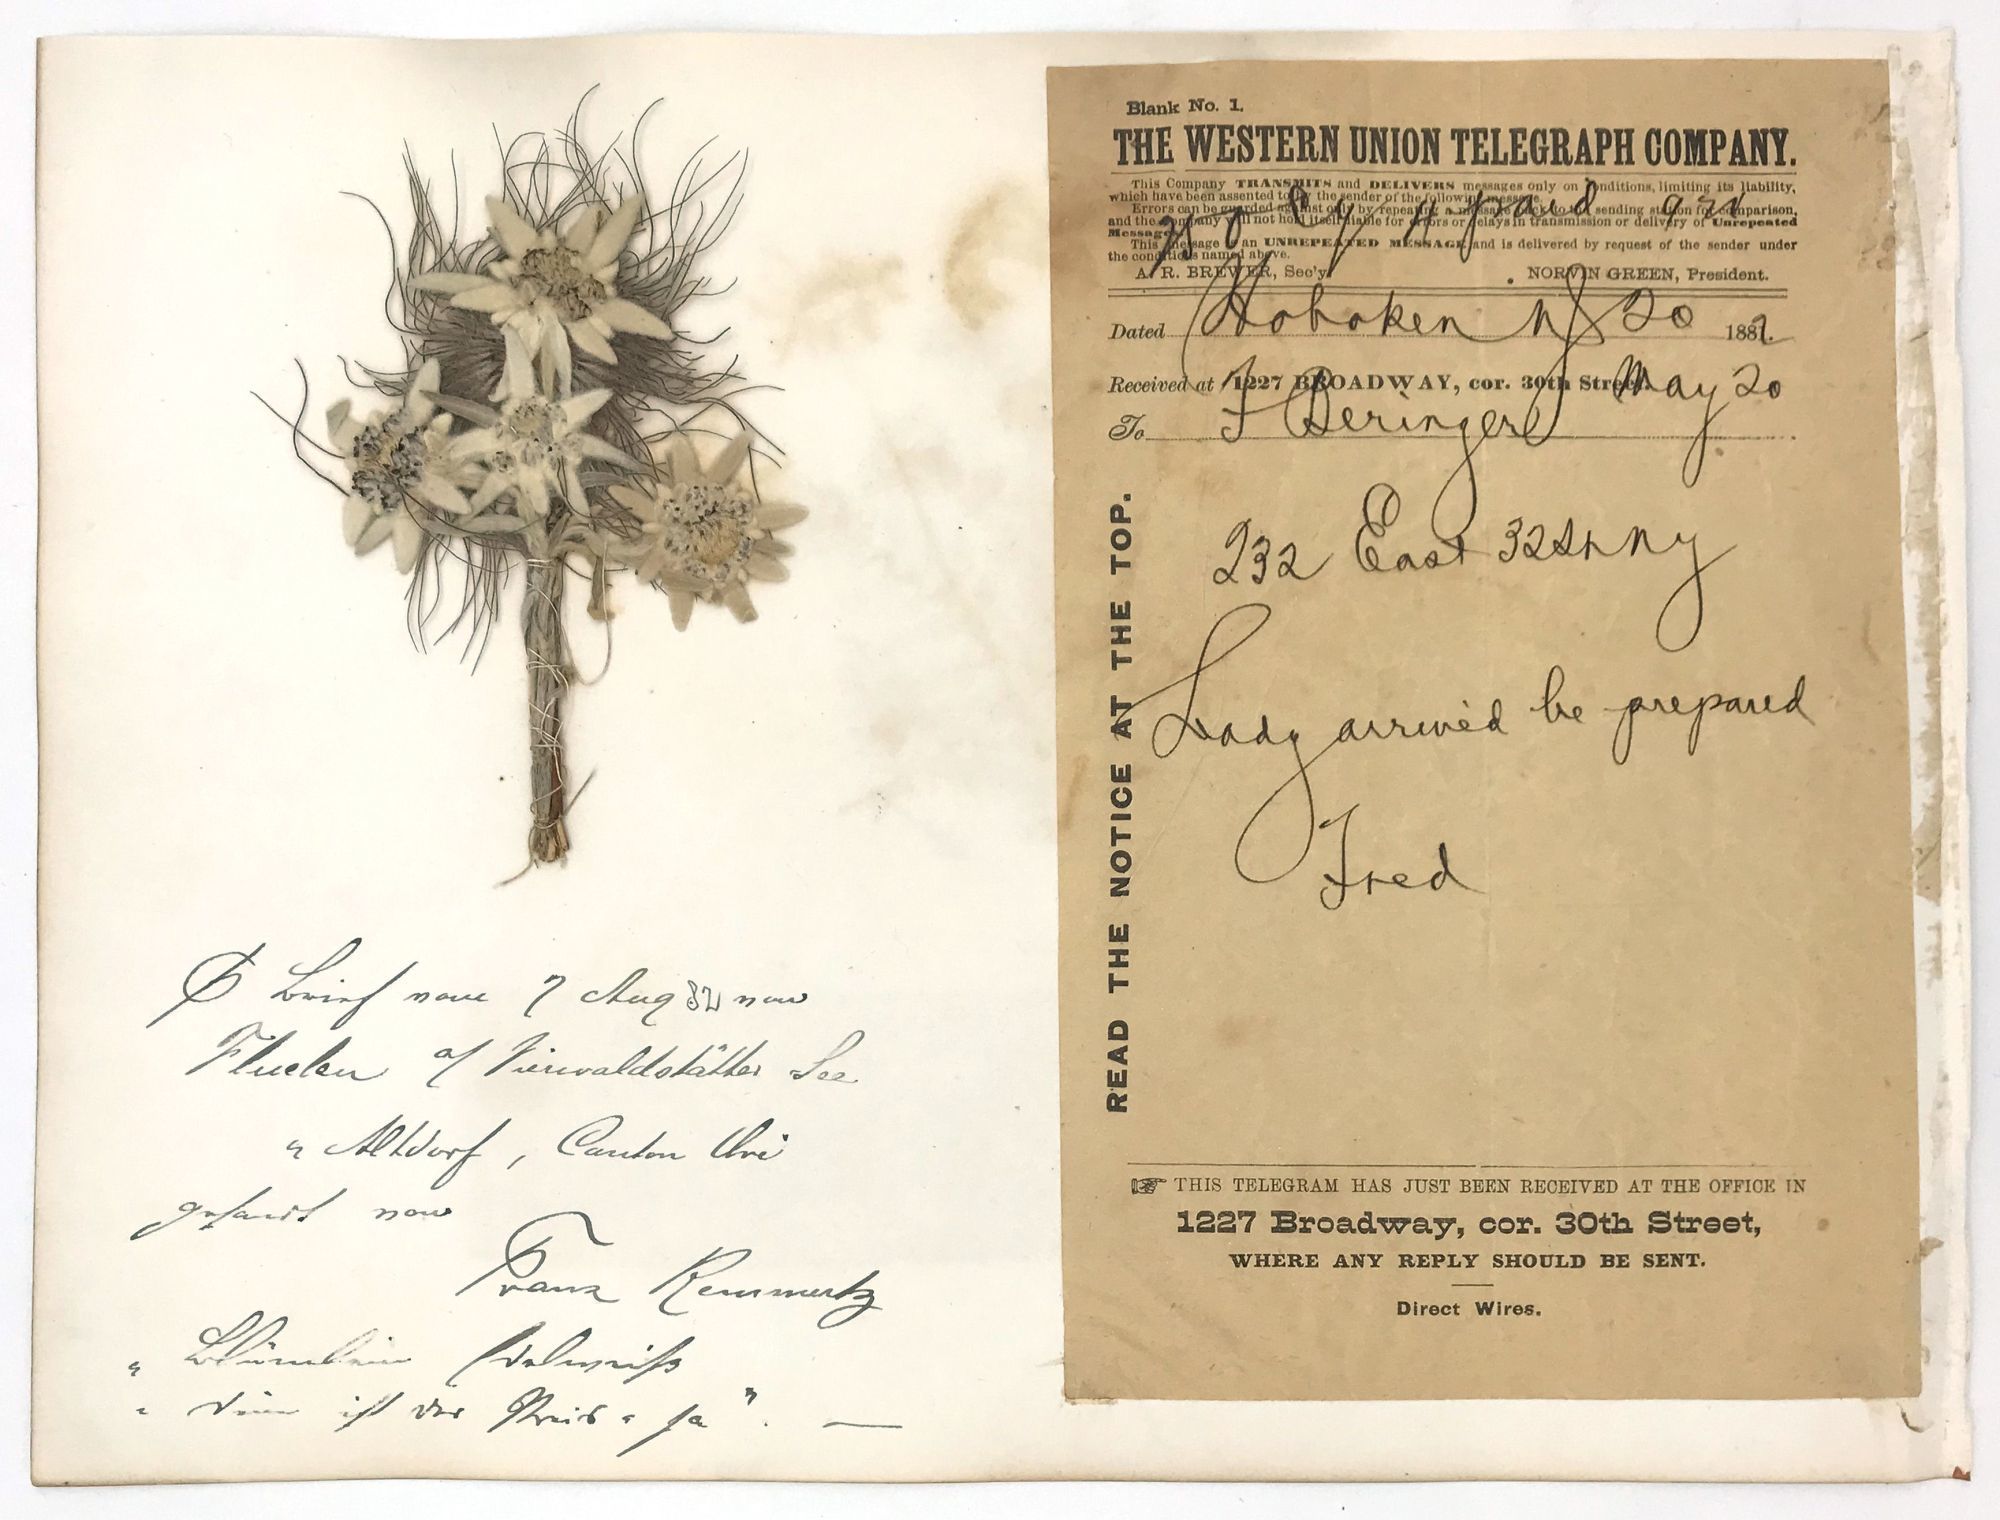 Brief vom 7 Aug 82 von
Fluelen a/ Vierwaldstätter See
" Altdorf, Canton Uri
gesandt von
Franz Remmertz
" Blümlein Edelweiß
" Dein ist der Preis " ja ". —
Blank No. 1.
THE WESTERN UNION TELEGRAPH COMPANY.
This Company TRANSMITS and DELIVERS messages only on conditions, limiting its liability,
which have been assented to by the sender of the following message.
Errors can be guarded against only by repeating a message back to the sending station for comparison,
and the company will not hold itself liable for errors or delays in transmission or delivery of Unrepeated
Messages.
This message is an UNREPEATED MESSAGE and is delivered by request of the sender under
the conditions named above.
A. R. BREWER, Sec'y. NORVIN GREEN, President.
paid
Dated Hoboken NJ 20 1882.
Received at 1227 BROADWAY, cor. 30th Street. May 20
To F Beringer
232 East 32 St NY
Lady arrived be prepared
Fred
READ THE NOTICE AT THE TOP.
THIS TELEGRAM HAS JUST BEEN RECEIVED AT THE OFFICE IN
1227 Broadway, cor. 30th Street,
WHERE ANY REPLY SHOULD BE SENT.
Direct Wires.